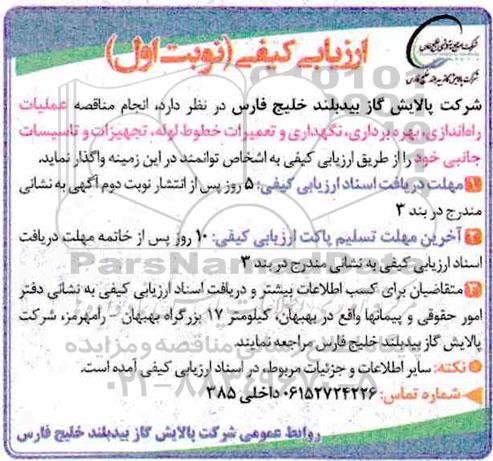 ارزیابی کیفی (نوبت اول)
شرکت پالایش گاز بیدبلند خلیج فارس
شرکت پالایش گاز بیدبلند خلیج فارس در نظر دارد، انجام مناقصه عملیات
راه‌اندازی، بهره برداری، نگهداری و تعمیرات خطوط لوله، تجهیزات و تاسیسات
جانبی خود را از طریق ارزیابی کیفی به اشخاص توانمند در این زمینه واگذار نماید.
۱ مهلت دریافت اسناد ارزیابی کیفی: ۵ روز پس از انتشار نوبت دوم آگهی به نشانی
مندرج در بند ۳
۲ آخرین مهلت تسلیم پاکت ارزیابی کیفی: ۱۰ روز پس از خاتمه مهلت دریافت
اسناد ارزیابی کیفی به نشانی مندرج در بند ۳
۳ متقاضیان برای کسب اطلاعات بیشتر و دریافت اسناد ارزیابی کیفی به نشانی دفتر
امور حقوقی و پیمانها واقع در بهبهان، کیلومتر ۱۷ بزرگراه بهبهان – رامهرمز، شرکت
پالایش گاز بیدبلند خلیج فارس مراجعه نمایند.
نکته: سایر اطلاعات و جزئیات مربوطه، در اسناد ارزیابی کیفی آمده است.
شماره تماس: ۰۶۱۵۲۷۲۴۲۲۶ داخلی ۳۸۵
روابط عمومی شرکت پالایش گاز بیدبلند خلیج فارس